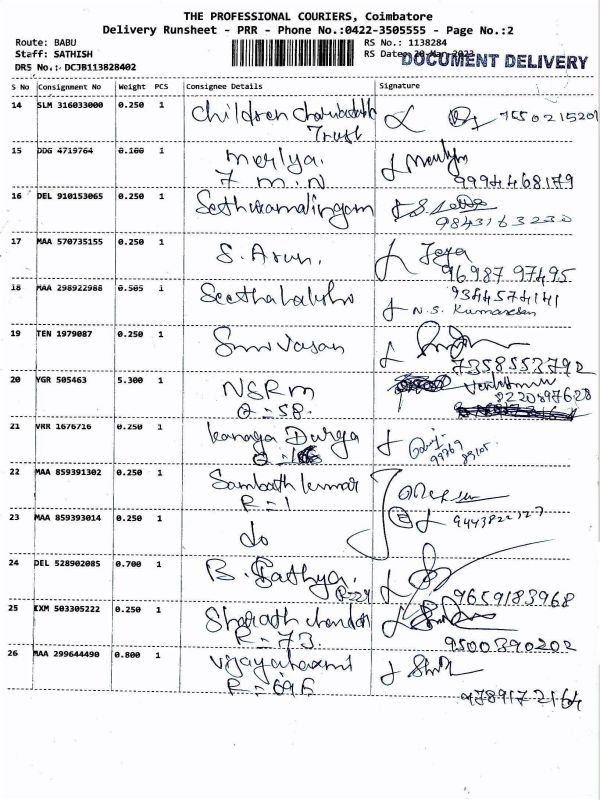 THE PROFESSIONAL COURIERS, Coimbatore
Delivery Runsheet - PRR - Phone No.:0422-3505555 - Page No.:2
Route: BABU RS No.: 1138284
Staff: SATHISH RS Date: 20-Mar-2023 DOCUMENT DELIVERY
DRS No.: DCJB113828402
S No Consignment No Weight PCS Consignee Details Signature
14 SLM 316033000 0.250 1 Children Trust 7550215201
15 DDG 4719764 0.100 1 merlya.
7 m.N 9994468179
16 DEL 910153065 0.250 1 Sethuramalingam
9843163230
17 MAA 570735155 0.250 1 S. Arun. Jeya
96987 97495
18 MAA 298922988 0.505 1 9344574141
N.S. Kumaresan
19 TEN 1979087 0.250 1 Srinivasan
7358553792
20 YGR 505463 5.300 1 NSRM
2-58. 8220897628
21 VRR 1676716 0.250 1 Kanaga Durga
99769
22 MAA 859391302 0.250 1 Sambath kumar
R-1
23 MAA 859393014 0.250 1 do
24 DEL 528902085 0.700 1 B. Sathya.
R-24 9659183968
25 KXM 503305222 0.250 1 Sharath chandar
R-73. 9500890202
26 MAA 299644490 0.800 1 Vijayalaxmi
R-696 9789172164